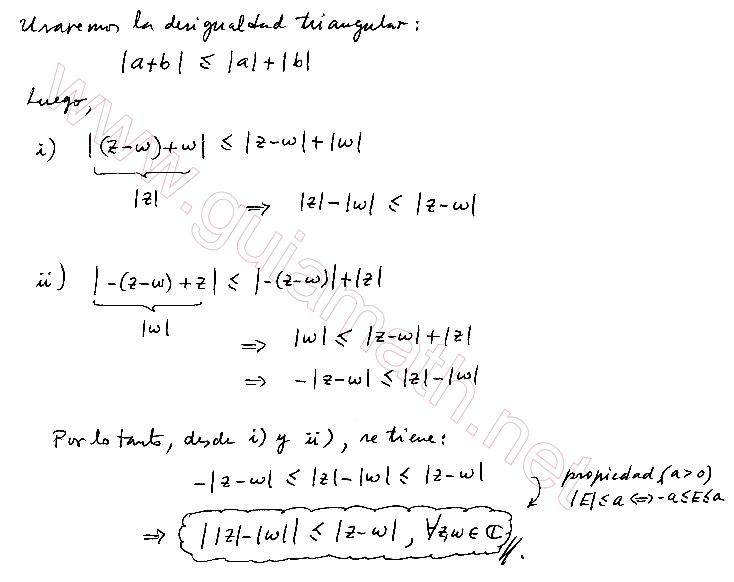 Usaremos la desigualdad triangular:
|a+b| ≤ |a|+|b|
Luego,
i) |(z-w)+w| ≤ |z-w|+|w|
|z| ⇒ |z|-|w| ≤ |z-w|
ii) |-(z-w)+z| ≤ |-(z-w)|+|z|
|w|
⇒ |w| ≤ |z-w|+|z|
⇒ -|z-w| ≤ |z|-|w|
Por lo tanto, desde i) y ii), se tiene:
-|z-w| ≤ |z|-|w| ≤ |z-w|
propiedad (a>0)
|E| ≤ a ⇔ -a ≤ E ≤ a
⇒ ||z|-|w|| ≤ |z-w|, ∀z,w ∈ ℂ
www.guiamath.net